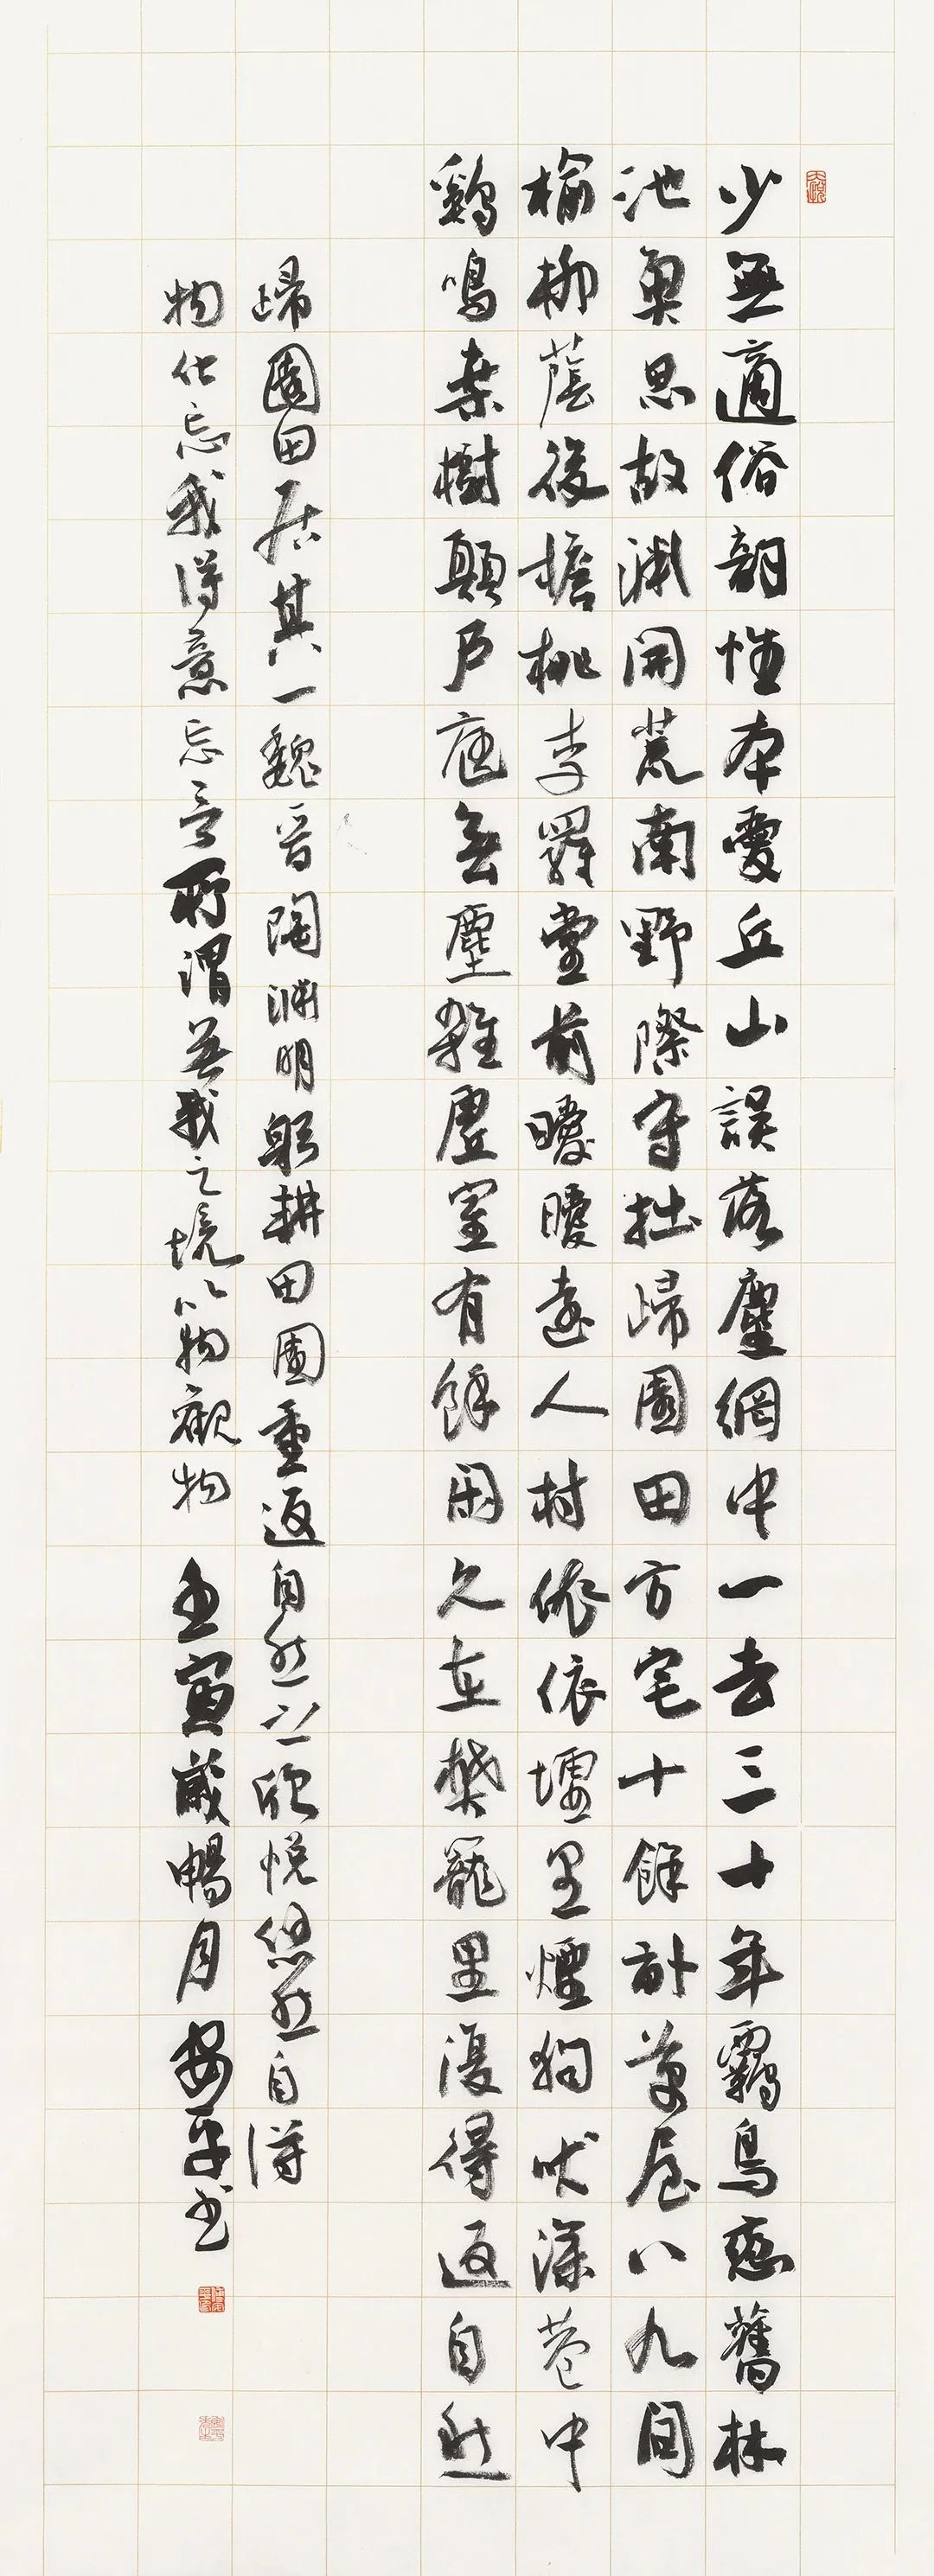 少無適俗韻性本愛丘山誤落塵網中一去三十年羈鳥戀舊林
池魚思故淵開荒南野際守拙歸園田方宅十餘畝草屋八九間
榆柳蔭後檐桃李羅堂前曖曖遠人村依依墟里煙狗吠深巷中
鷄鳴桑樹顛戶庭無塵雜虛室有餘閑久在樊籠里復得返自然
歸園田居其一魏晉陶淵明躬耕田園重返自然之欣悅悠然自得
物化忘我得意忘言所謂無我之境以物觀物 壬寅歲暢月 安平书